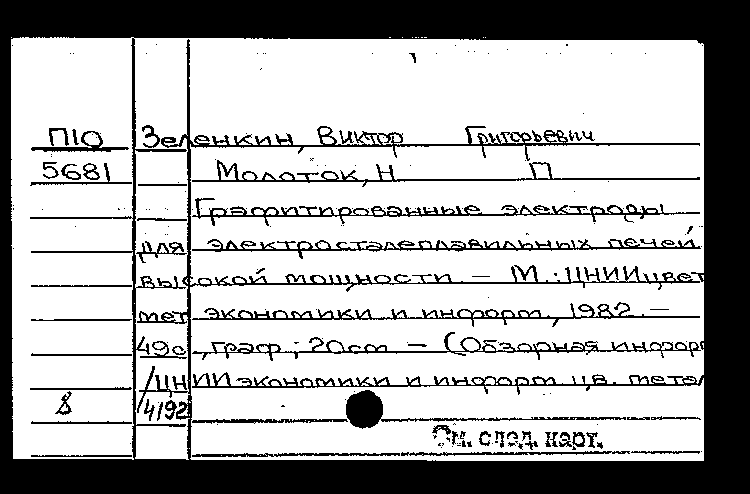 П10 Зеленкин, Виктор Григорьевич
5681 Молоток, Н П
Графитированные электроды
для электросталеплавильных печей
высокой мощности. – М.: ЦНИИцвет
мет экономики и информ, 1982. –
49с., граф; 20см – (Обзорная информ
/ЦНИИ экономики и информ цв. метал
/4192
См. след. карт.